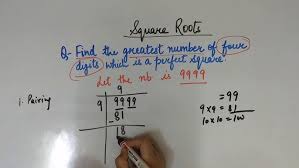 Square Roots
Q- Find the greatest number of four
digits which is a perfect square?
Let the nb is 9999
1. Pairing
9
9 9999
- 81
18
= 99
9 x 9 = 81
10 x 10 = 100